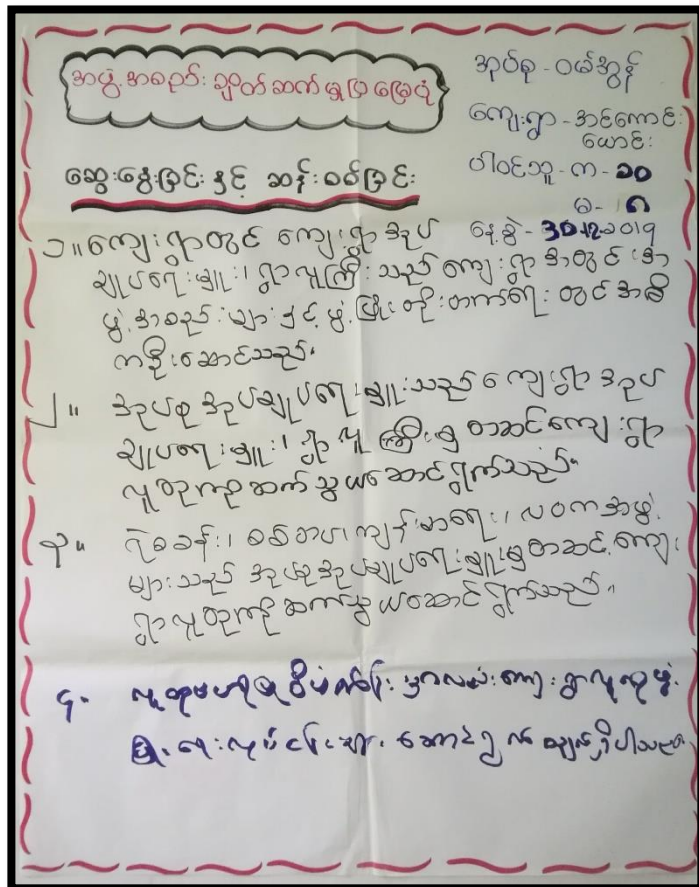 အဖွဲ့အစည်း ချိတ်ဆက်မှုပြမြေပုံ
အုပ်စု - ဝမ်အွန်
ကျေးရွာ - အင်ကောင်း
ယောင်း
ပါဝင်သူ - က - ၁၀
မ - ၈
နေ့စွဲ - 30.12.2019
ဆွေးနွေးခြင်းနှင့် ဆန်းစစ်ခြင်း
၁။ ကျေးရွာတွင် ကျေးရွာအုပ်
ချုပ်ရေးမှူး၊ ရွာလူကြီးသည် ကျေးရွာအတွင်း အ
ဖွဲ့အစည်းများနှင့် ဖွံ့ဖြိုးတိုးတက်ရေးတွင် အဓိ
ကဦးဆောင်သည်။
၂။ အုပ်စုအုပ်ချုပ်ရေးမှူးသည် ကျေးရွာအုပ်
ချုပ်ရေးမှူး၊ ရွာလူကြီးမှ တဆင့်ကျေးရွာ
လူထုကဆက်သွယ်ဆောင်ရွက်သည်။
၃။ ရဲစခန်း၊ စစ်တပ်၊ ကျန်းမာရေး၊ လဝက အဖွဲ့
များသည် အုပ်စုအုပ်ချုပ်ရေးမှူးမှတဆင့် ကျေး
ရွာလူထုကဆက်သွယ်ဆောင်ရွက်သည်။
၄။ လူထုဗဟိုပြုစီမံကိန်း လူထုဖွံ့
ဖြိုးရေးလုပ်ငန်းများ ဆောင်ရွက်